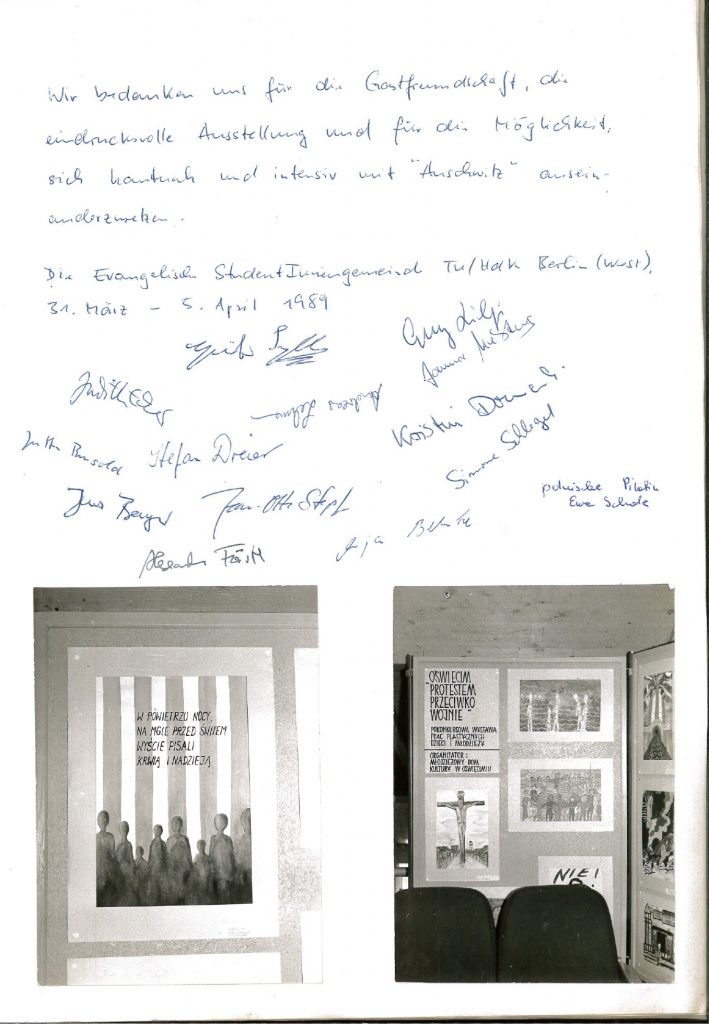 Wir bedanken uns für die Gastfreundschaft, die
eindrucksvolle Ausstellung und für die Möglichkeit,
sich hautnah und intensiv mit "Auschwitz" ausein-
anderzusetzen.
Die Evangelische StudentInnengemeinde TU/HdK Berlin (West),
31. März – 5. April 1989
Judith
Andreas
Kristin
Stefan Dreier
Simone Schlegel
Jens Berger
Jan-Otto
polnische Pilotin
Ewa
Anja
W POWIETRZU NOCY,
NA MGLE PRZED ŚWITEM
WYŚCIE PISALI
KRWIĄ I NADZIEJĄ
OŚWIĘCIM
"PROTESTEM
PRZECIWKO
WOJNIE"
POKONKURSOWA WYSTAWA
PRAC PLASTYCZNYCH
DZIECI I MŁODZIEŻY
ORGANIZATOR:
MŁODZIEŻOWY DOM
KULTURY W OŚWIĘCIMIU
NIE!